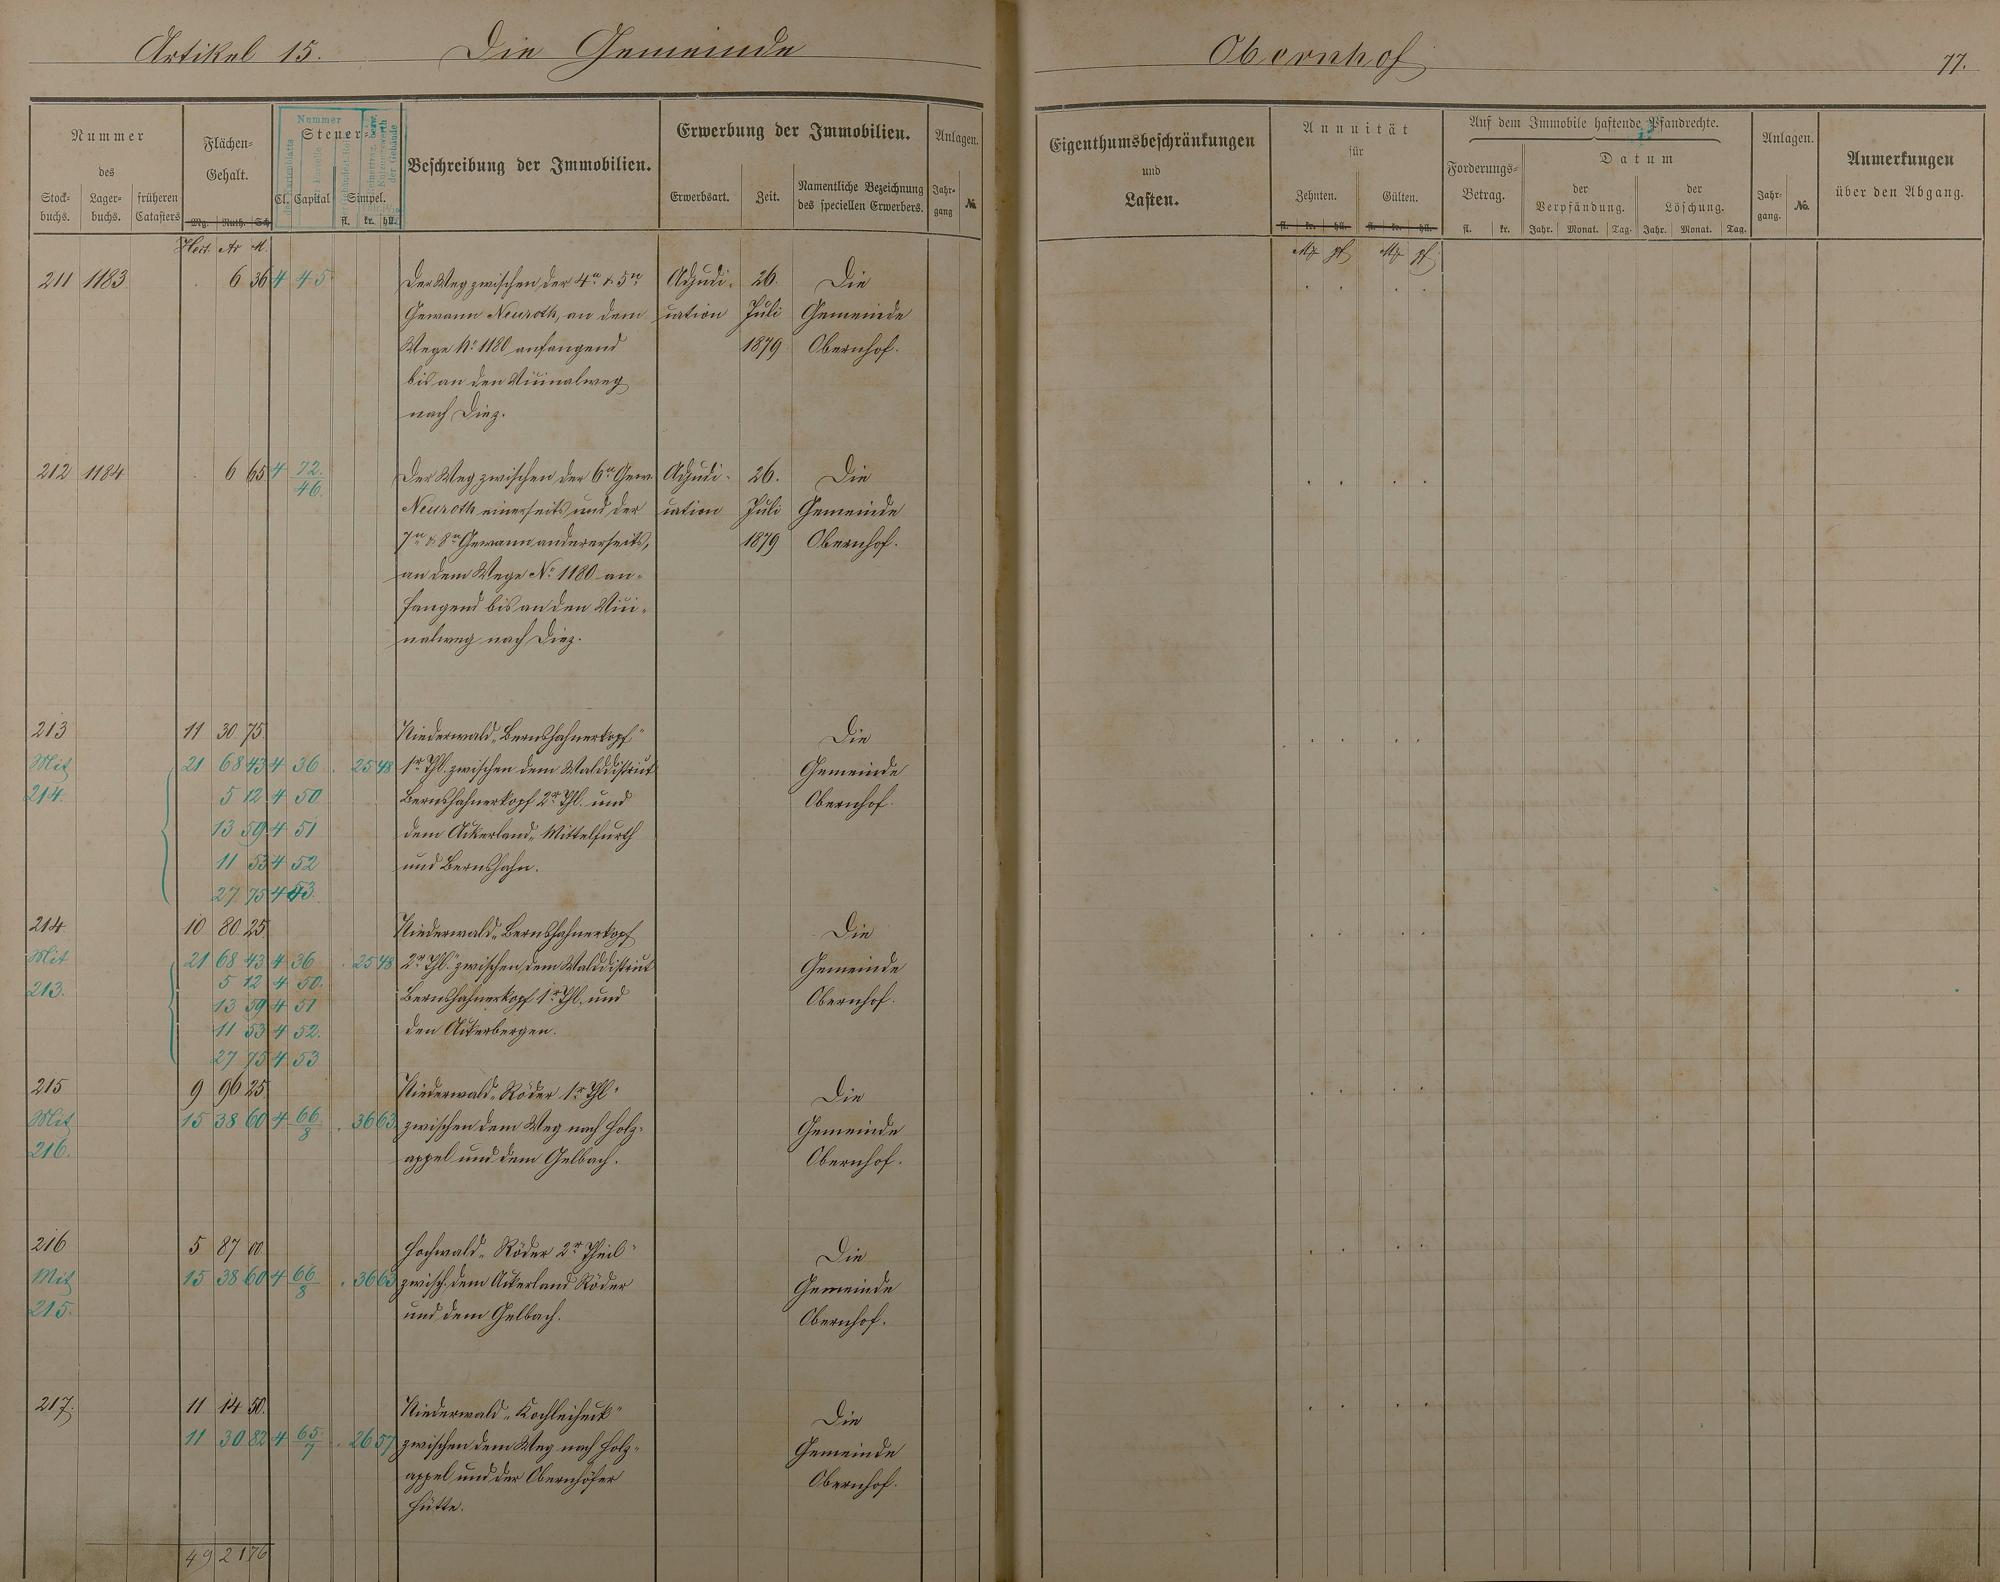 Artikel 15. Die Gemeinde Obernhof 77.
Nummer des
Stock-buchs. Lager-buchs. früheren Catasters
Flächen-Gehalt.
Mg. Ruth. Sch.
Nummer
Steuer-
Cl. Capital Simpel.
fl. kr. hll.
Beschreibung der Immobilien.
Erwerbung der Immobilien.
Erwerbsart. Zeit. Namentliche Bezeichnung des speciellen Erwerbers.
Anlagen.
Jahr-gang No.
Eigenthumsbeschränkungen
und
Lasten.
Annuität
für
Zehnten. Gülten.
fl. kr. hll. fl. kr. hll.
Auf dem Immobile haftende Pfandrechte.
Forderungs-Betrag.
fl. kr.
Datum
der Verpfändung. der Löschung.
Jahr. Monat. Tag. Jahr. Monat. Tag.
Anlagen.
Jahr-gang. No.
Anmerkungen
über den Abgang.
Hect. Ar M. M pf M pf
211 1183 6 36 4 45 Der Weg zwischen der 4n & 5n Adjudi- 26. Die
Gewann Neuroth, an dem cation Juli Gemeinde
Wege No 1180 anfangend 1879 Obernhof.
bis an den Vicinalweg
nach Diez.
212 1184 6 65 4 72/46 Der Weg zwischen der 6n Gew. Adjudi- 26. Die
Neuroth einerseits und der cation Juli Gemeinde
7n & 8n Gewann andererseits, 1879 Obernhof.
an dem Wege No 1180 an-
fangend bis an den Vici-
nalweg nach Diez.
213 11 30 75 Niederwald „Bernshahnerkopf" Die
Mit 21 68 43 4 36 . 25 48 1r Thl. zwischen dem Walddistrict Gemeinde
214. 5 12 4 50 Bernshahnerkopf 2r Thl. und Obernhof.
13 59 4 51 dem Ackerland „Mittelfurth
11 53 4 52 und Bernshahn.
27 75 4 53
214 10 80 25 Niederwald „Bernshahnerkopf Die
Mit 21 68 43 4 36 . 25 48 2r Thl." zwischen dem Walddistrict Gemeinde
213. 5 12 4 50. Bernshahnerkopf 1r Thl. und Obernhof.
13 59 4 51
11 53 4 52. den Ackerbergen.
27 75 4 53
215 9 96 25 Niederwald „Röder 1r Thl." Die
Mit 15 38 60 4 66/8 . 36 63 zwischen dem Weg nach Holz- Gemeinde
216. appel und dem Gelbach. Obernhof.
216 5 87 00 Hochwald „Röder 2r Theil" Die
Mit 15 38 60 4 66/8 . 36 63 zwisch. dem Ackerland Röder Gemeinde
215. und dem Gelbach. Obernhof.
217. 11 14 50. Niederwald „Kochleiheck" Die
11 30 82 4 65/7 . 26 57 zwischen dem Weg nach Holz- Gemeinde
appel und der Obernhöfer Obernhof.
Hütte.
49 21 76